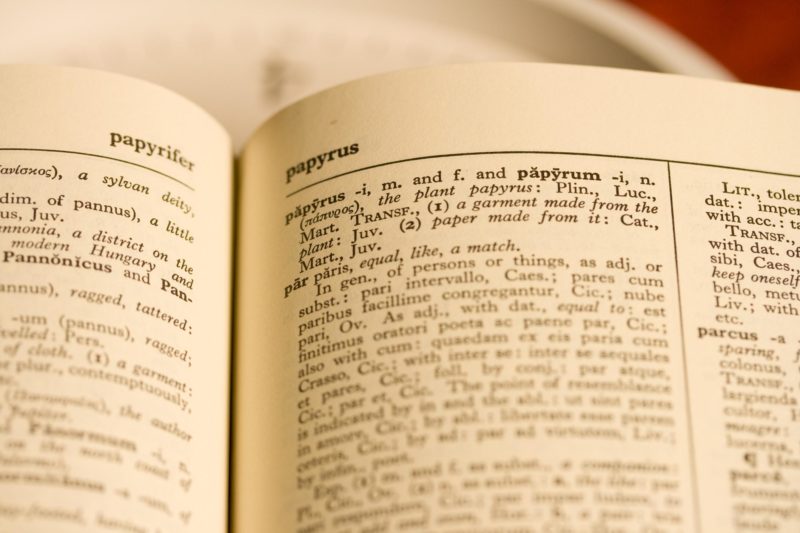 papyrifer
(Πανίσκος), a sylvan deity,
dim. of pannus), a little
us, Juv.
nnonia, a district on the
modern Hungary and
Pannŏnĭcus and Pan-
annus), ragged, tattered:
-um (pannus), ragged;
velled: Pers.
of cloth. (1) a garment:
plur., contemptuously,
the author
-i, n.
on the north coast of
papyrus
păpȳrus -i, m. and f. and păpȳrum -i, n.
(πάπυρος), the plant papyrus: Plin., Luc.,
Mart. TRANSF., (1) a garment made from the
plant: Juv. (2) paper made from it: Cat.,
Mart., Juv.
pār pāris, equal, like, a match.
In gen., of persons or things, as adj. or
subst.: pari intervallo, Caes.; pares cum
paribus facillime congregantur, Cic.; nube
pari, Ov. As adj., with dat., equal to: est
finitimus oratori poeta ac paene par, Cic.;
also with cum: quaedam ex eis paria cum
Crasso, Cic.; with inter se: inter se aequales
et pares, Cic.; foll. by conj.: par atque,
Cic.; par et, Cic. The point of resemblance
is indicated by in and the abl.: ut sint pares
in amore, Cic.; by abl.: libertate esse parem
ceteris, Cic.; by ad: par ad virtutem, Liv.;
by infin., poet.
Esp. (1) m. and f. as subst., a companion:
Pl., Cic., Ov. (2) n. as subst.,
LIT., toler
dat.: imper
with acc.: ta
TRANSF.,
with dat. of
sibi, Caes.,
keep oneself
bello, metu
Liv.; with
etc.
parcus -a
sparing, f
colonus,
TRANSF.,
largienda
cultor, H
meagre:
lucerna,
¶ Hen
parcē,
frumentu